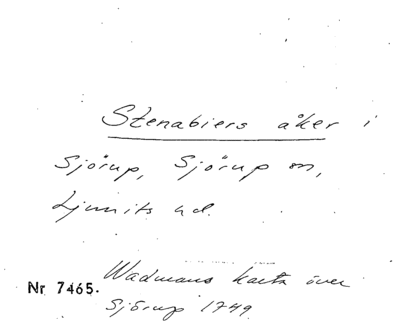 Stenabiers åker i
Sjörup, Sjörup sn,
Ljunits hd.
Wadmans karta över
Nr 7465.
Sjörup 1749